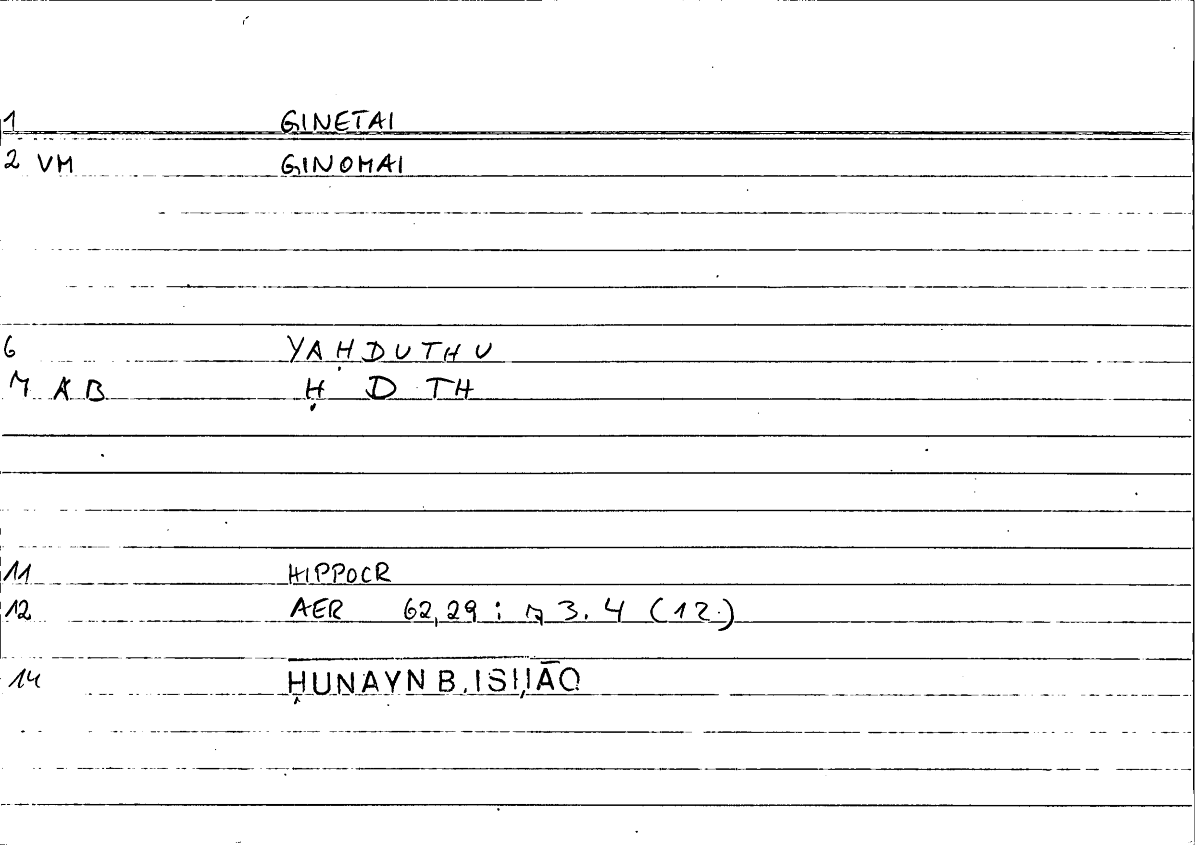 1 GINETAI
2 VM GINOMAI
6 YAḤDUTHU
7 A B Ḥ D TH
11 HIPPOCR
12 AER 62,29 : 3. 4 (12.)
14 ḤUNAYN B. ISḤĀQ